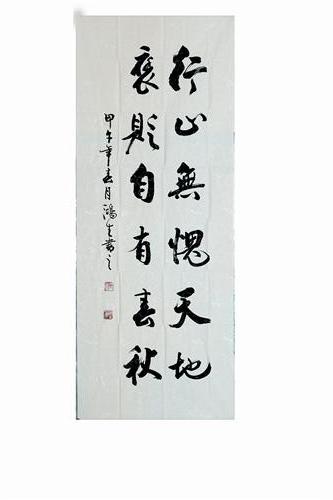 行止無愧天地
褒貶自有春秋
甲午年春月鴻生書之